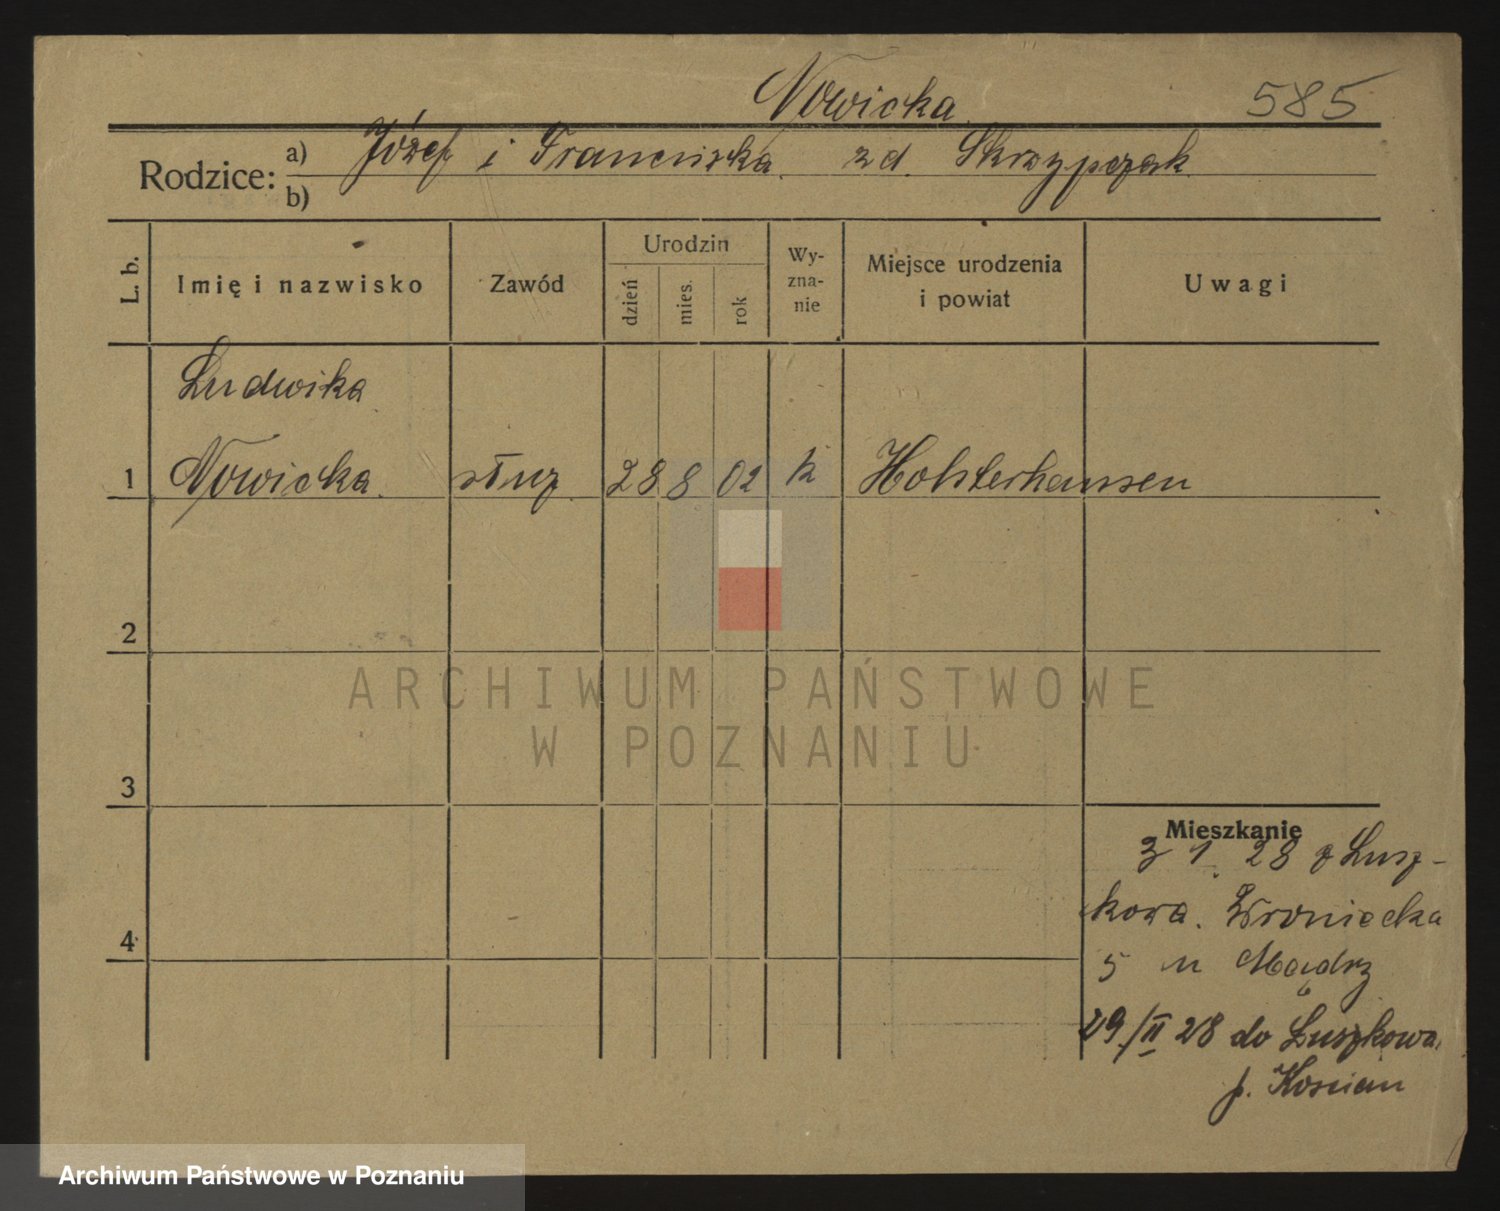 Nowicka 585
Rodzice: a) Józef i Franciszka zd. Skrzypczak
b)
L. b. Imię i nazwisko Zawód Urodzin dzień mies. rok Wy-zna-nie Miejsce urodzenia i powiat Uwagi
Ludwika
1 Nowicka służ. 28 8 02 k Holsterhausen
2
ARCHIWUM PAŃSTWOWE
W POZNANIU
3
Mieszkanie
3 1. 28 z Lusz-
kowa. Wroniecka
4
5 u Mądrz
29/II 28 do Luszkowa,
p. Kościan
Archiwum Państwowe w Poznaniu